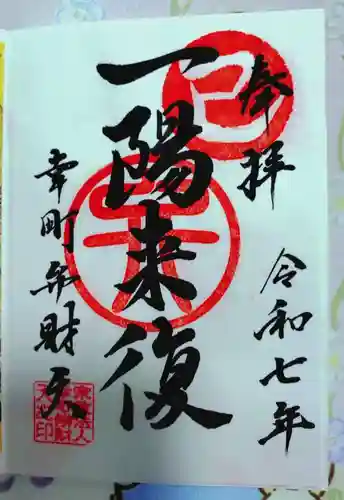 奉拝
令和七年
一陽来復
幸町弁財天
巳